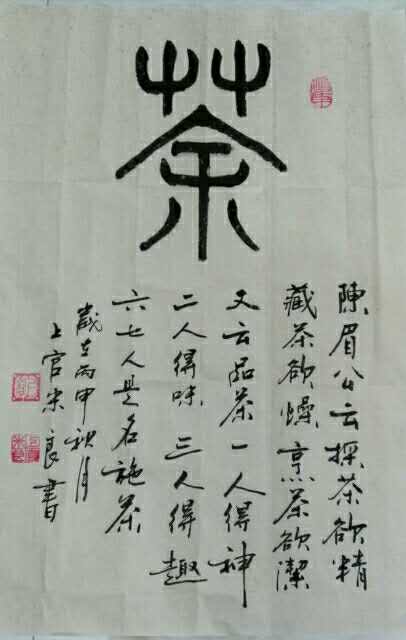 茶
陳眉公云採茶欲精
藏茶欲燥烹茶欲潔
又云品茶一人得神
二人得味三人得趣
六七人是名施茶
歲在丙申秋月
上官忠良書